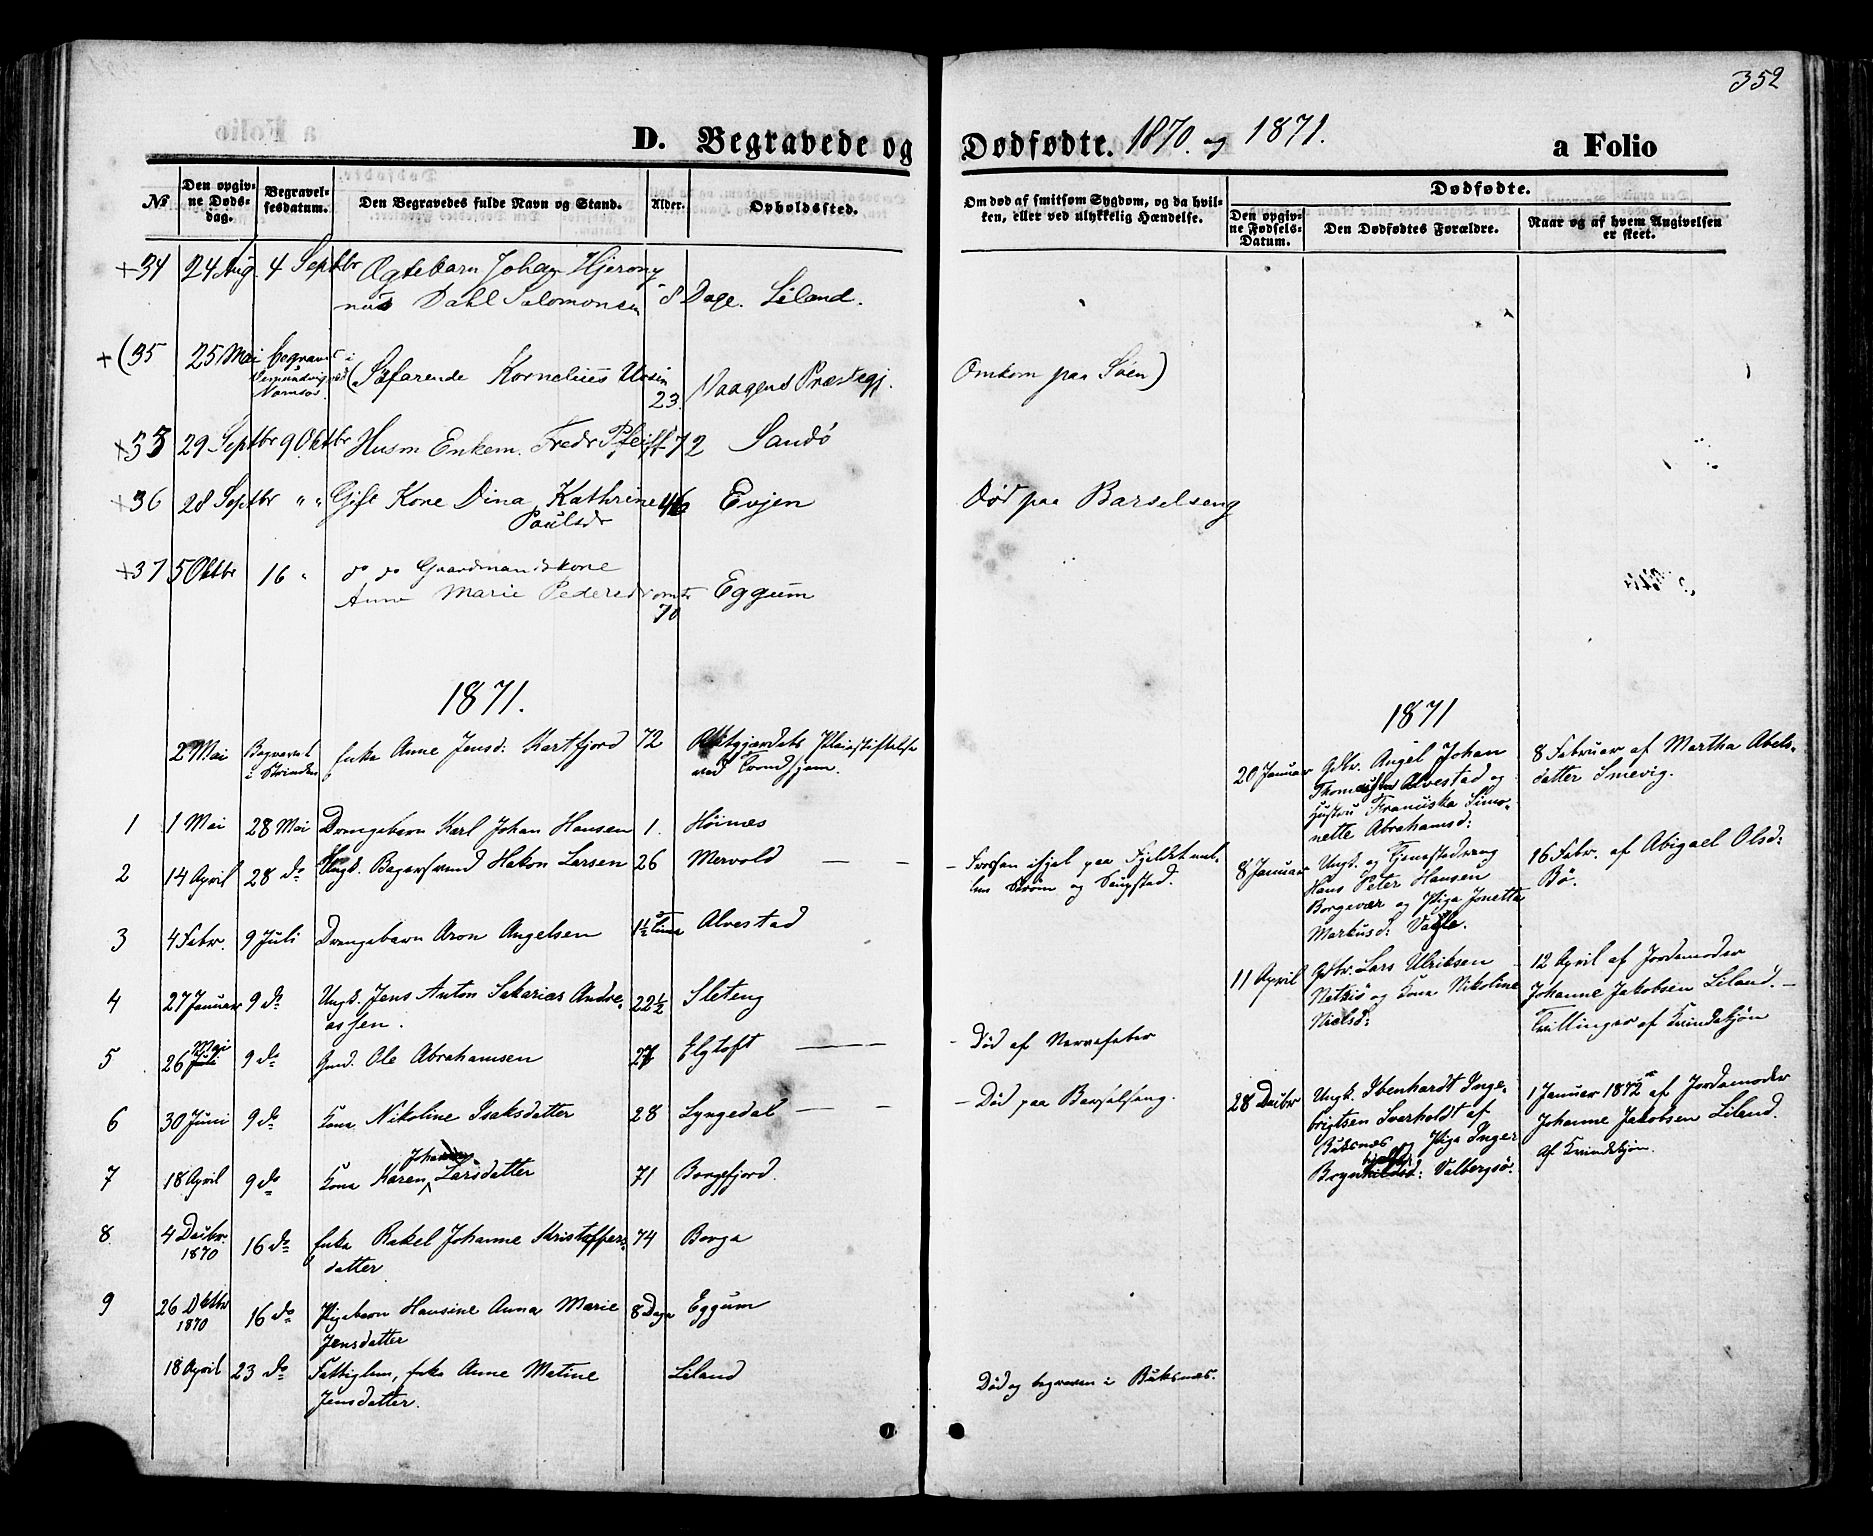 352
D. Begravede og Dødfødte. 1870. og 1871.
a Folio
No
Den opgiv-
ne Døds-
dag.
Begravel-
sesdatum.
Den Begravedes fulde Navn og Stand.
Alder.
Opholdssted.
Om død af smitsom Sygdom, og da hvil-
ken, eller ved ulykkelig Hændelse.
Dødfødte.
Den opgiv-
ne Fødsels-
Datum.
Den Dødfødtes Forældre.
Naar og af hvem Angivelsen
er skeet.
+34 24 Aug. 4 Septbr Ægtebarn Johan Hjerony
mus Dahl Salomonsen 8 Dage. Liland.
+(35 25 Mai begravet i
(Søfarende Kornelius Ursin 23. Vaagens Præstegj. Omkom paa Søen)
+35 29 Septbr 9 Oktbr Husm Enkem. Fredr Pfeiff 72 Sandø
+36 28 Septbr " " Gift Kone Dina Kathrine
Paulsdr 46 Evjen Død paa Barselseng
+37 5 Oktbr 16 " do do Gaardmandskone
Anne Marie Pedersdr omtr
70 Eggum
1871.
2 Mai Begravet
i Strinden Enke Anne Jensd: Kartfjord 72
ved Trondhjem.
1 1 Mai 28 Mai Drengebarn Karl Johan Hansen 1. Høines
2 14 April 28 do Ungk. Bagersvend Hakon Larsen 26 Mervold — — Frossen ihjel paa Fjeldet mel-
lem Strøm og Sengstad.
3 4 Febr. 9 Juli Drengebarn Aron Angelsen 1½ Time Alvestad
4 27 Januar 9 do Ungk. Jens Anton Sakarias Andre-
assen. 22½ Sleteng
5 26 Mai 9 do Gmd. Ole Abrahamsen 27 Elgtoft — — Død af Nervefeber
6 30 Juni 9 do Kone Nikoline Isaksdatter 28 Lyngedal — — Død paa Barselseng.
7 18 April 9 do Kone Karen Larsdatter 71 Borgfjord.
8 4 Decbr
1870 16 do Enke Rakel Johanne Kristoffers-
datter 74 Borga
9 26 Oktbr
1870 16 do Pigebarn Hansine Anna Marie
Jensdatter 8 Dage Eggum
18 April 23 do Fattiglem, Enke Anne Matine
Jensdatter. Liland Død og begraven i Buksnes.
1871
20 Januar Gbr. Angel Johan
Thomassen Alvestad og
Hustru Franciska Simo-
nette Abrahamsd:
8 Februar af Martha Abels-
datter Smevig.
8 Januar Ungk. og Tjenestedreng
Hans Peter Hansen
Borgevær og Pige Jonetta
Markusd: Valle.
16 Febr. af Abigael Olsd:
Bø.
11 April Gbr. Lars Ulriksen
og Kone Nikoline
Nielsd:
12 April af Jordemoder
Johanne Jakobsen Liland. —
Tvillinger af Kvindekjøn
28 Decbr Ungk. Ibenhardt Inge-
brigtsen Sverholdt af
Buksnes og Pige Inger
Valbergsø.
1 Januar 1872 af Jordemoder
Johanne Jakobsen Liland.
Af Kvindekjøn.